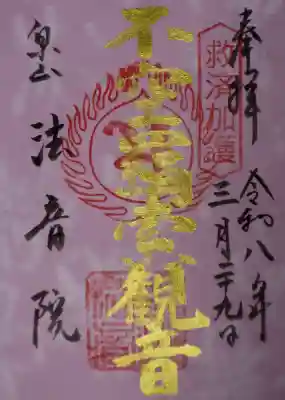 奉拝
救済加護
令和八年
三月二十九日
不空羂索観音
泉山
法音院